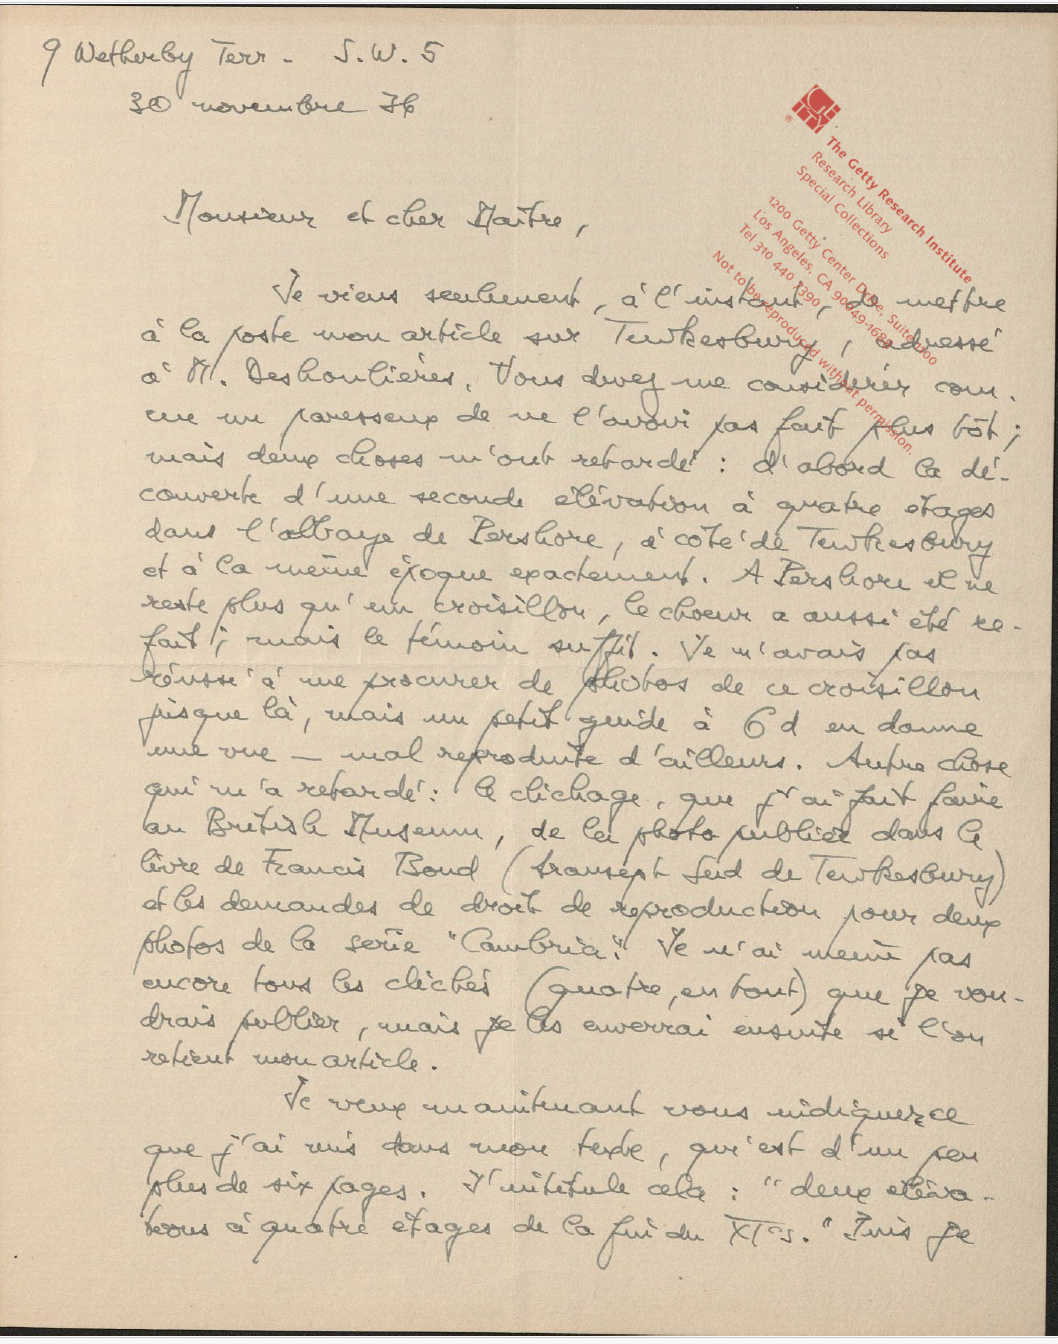 9 Wetherby Terr - S.W. 5
30 novembre 36
GETTY
®
The Getty Research Institute
Research Library
Special Collections
1200 Getty Center Drive, Suite 1100
Los Angeles, CA 90049-1688
Tel 310 440 7390
Not to be reproduced without permission.
Monsieur et cher Maître,
Je viens seulement, à l'instant, de mettre
à la poste mon article sur Tewkesbury, adressé
à M. Deshoulières. Vous devez me considérer com-
me un paresseux de ne l'avoir pas fait plus tôt ;
mais deux choses m'ont retardé : d'abord la dé-
couverte d'une seconde élévation à quatre étages
dans l'abbaye de Pershore, à côté de Tewkesbury
et à la même époque exactement. A Pershore il ne
reste plus qu'un croisillon, le choeur a aussi été re-
fait ; mais le témoin suffit. Je n'avais pas
réussi à me procurer de photos de ce croisillon
jusque là, mais un petit guide à 6 d en donne
une vue — mal reproduite d'ailleurs. Autre chose
qui m'a retardé : le clichage, que j'ai fait faire
au British Museum, de la photo publiée dans le
livre de Francis Bond (transept Sud de Tewkesbury)
et les demandes de droit de reproduction pour deux
photos de la série "Cambria". Je n'ai même pas
encore tous les clichés (quatre, en tout) que je vou-
drais publier, mais je les enverrai ensuite si l'on
retient mon article.
Je veux maintenant vous indiquer ce
que j'ai mis dans mon texte, qui est d'un peu
plus de six pages. J'intitule cela : "deux éléva-
tions à quatre étages de la fin du XIe s." Puis je